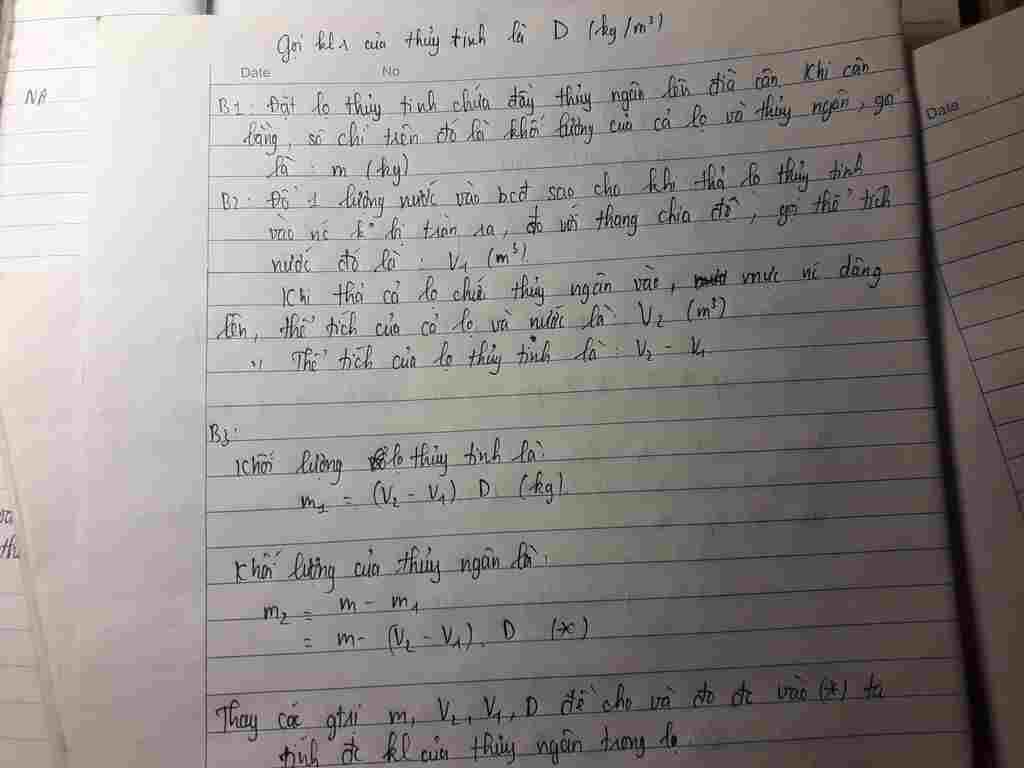 Gọi klr của thủy tinh là D (kg/m³)
Date No
NA
B1: Đặt lọ thủy tinh chứa đầy thủy ngân lên đĩa cân. Khi cân
bằng, số chỉ trên đó là khối lượng của cả lọ và thủy ngân, gọi
là : m (kg)
Date
B2: Đổ 1 lượng nước vào bcđ sao cho khi thả lọ thủy tinh
vào nc k bị tràn ra, đo với thang chia độ, gọi thể tích
nước đó là : V₁ (m³)
Khi thả cả lọ chứa thủy ngân vào, mực nc dâng
lên, thể tích của cả lọ và nước là V₂ (m³)
Thể tích của lọ thủy tinh là : V₂ - V₁
B3:
Khối lượng lọ thủy tinh là:
m₁ = (V₂ - V₁) D (kg)
Khối lượng của thủy ngân là:
m₂ = m - m₁
= m - (V₂ - V₁). D (*)
Thay các gtrị m, V₂, V₁, D đề cho và đo đc vào (*) ta
tính đc kl của thủy ngân trong lọ.